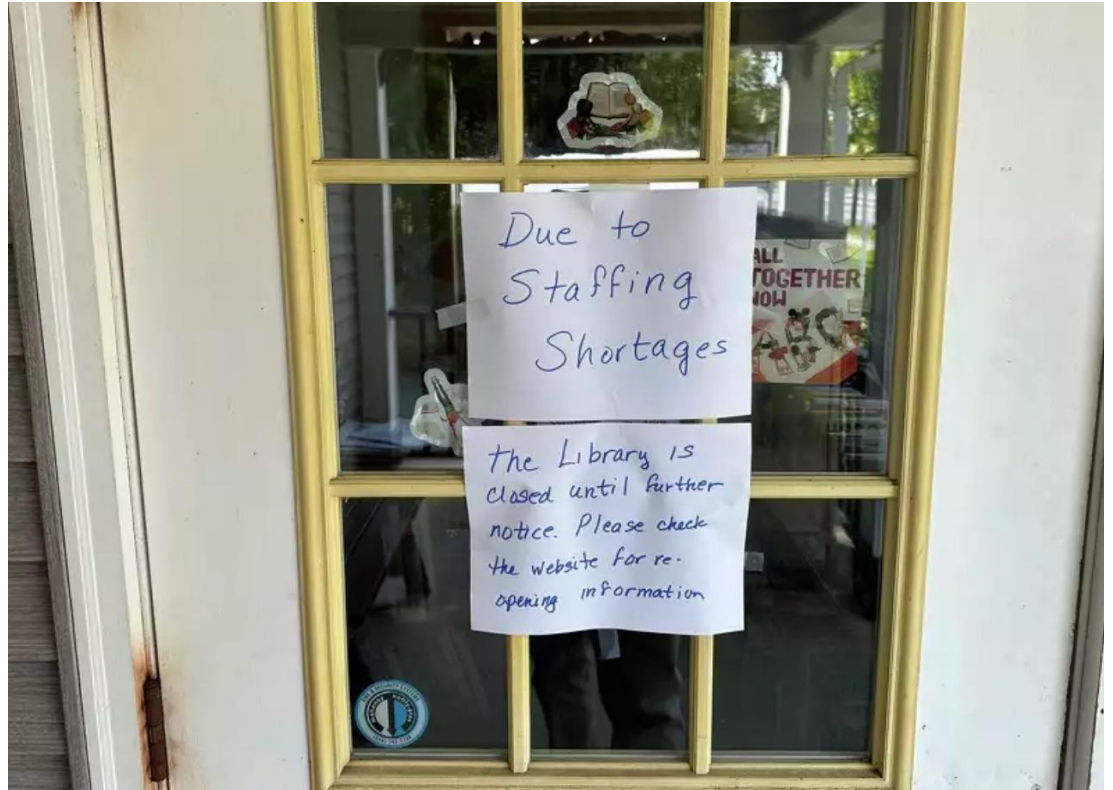 Due to
Staffing
Shortages
ALL
TOGETHER
NOW
The Library is
closed until further
notice. Please check
the website for re-
opening information